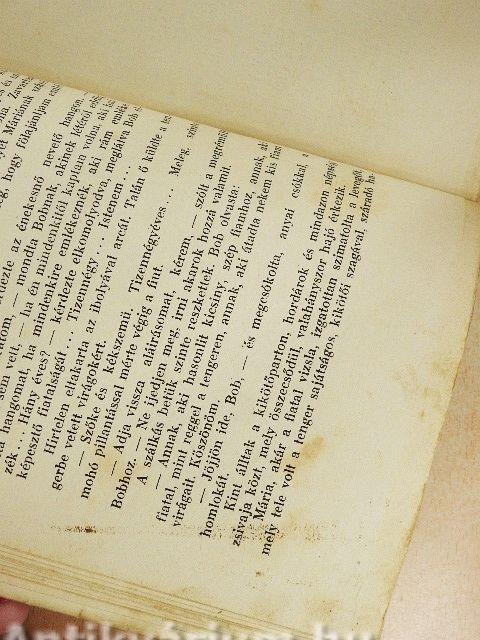 hogy fölajánljam
kérdezte az énekesnő nevető hangon,
— mondta Bobnak, akinek létéről
sem vett, — ha én mindenkitől kaptam volna, aki
hangomat, ha mindenkire emlékeznék, aki rám
zék... Hány éves? — kérdezte elkomolyodva, meglátva Bob
képesztő fiatalságát... Tizennégy... Istenem...
Hirtelen eltakarta az ibolyával arcát. Talán ő küldte a
gerbe vetett virágokért.
— Szőke és kékszemű. Tizennégyéves... Meleg,
mohó pillantással mérte végig a fiut.
— Adja vissza aláirásomat, kérem, — szólt a
Bobhoz. — Ne jedjen meg, irni akarok hozzá valamit.
A szálkás betük szinte reszkettek. Bob olvasta:
— Annak, aki hasonlit kicsiny, szép fiamhoz, annak,
fiatal, mint reggel a tengeren, annak, aki átadta nekem kis
virágait. Köszönöm.
— Jöjjön ide, Bob, — és megcsókolta, anyai csókkal, a
homlokát.
Kint álltak a kikötőparton, hordárok és mindazon népség
zsivaja közt, mely összecsődül, valahányszor hajó érkezik.
Mária, akár a fiatal vizsla, izgatottan szimatolta a levegőt,
mely tele volt a tenger sajátságos, kikötői szagával, száradó
Antikvárium.hu